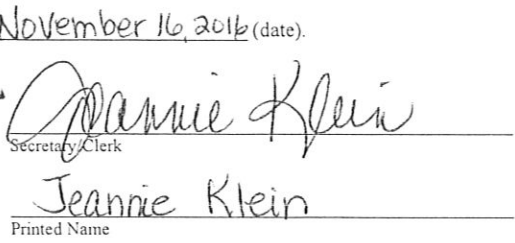 November 16, 2016 (date).
Jeannie Klein
Secretary/Clerk
Jeannie Klein
Printed Name